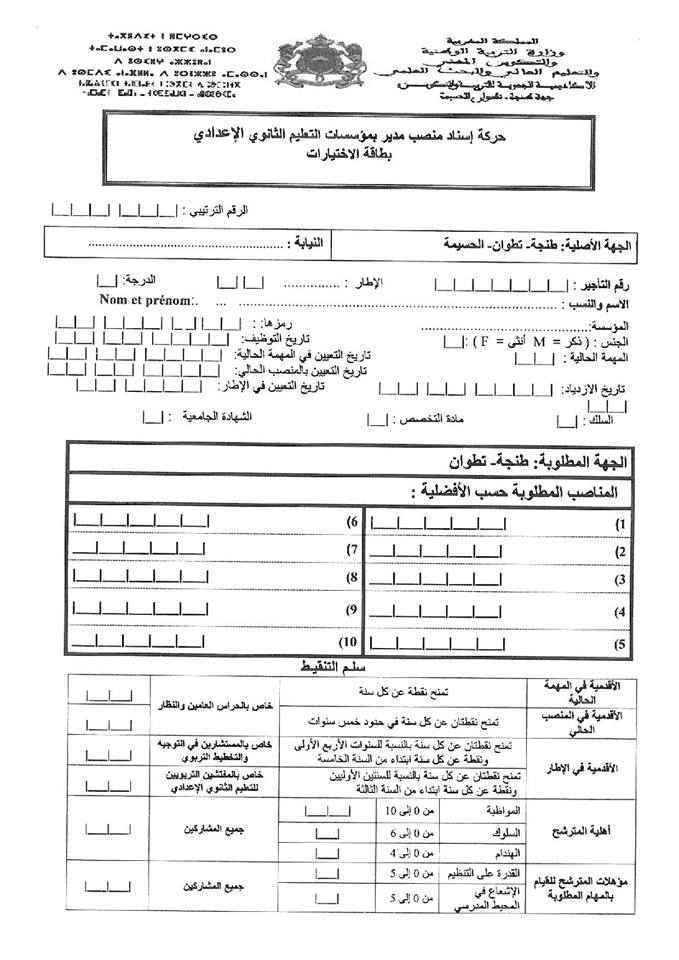 المملكة المغربية
وزارة التربية الوطنية
والتكوين المهني
والتعليم العالي والبحث العلمي
الأكاديمية الجهوية للتربية والتكوين
جهة طنجة - تطوان - الحسيمة
حركة إسناد منصب مدير بمؤسسات التعليم الثانوي الإعدادي
بطاقة الاختيارات
الرقم الترتيبي :
الجهة الأصلية: طنجة- تطوان- الحسيمة
النيابة : ......................................................
رقم التأجير : الإطار : .............. الدرجة:
الاسم والنسب : ................................................................. Nom et prénom:.
المؤسسة:............................................. رمزها:
الجنس : ( ذكر = M أنثى = F ): تاريخ التوظيف:
المهمة الحالية : تاريخ التعيين في المهمة الحالية:
تاريخ التعيين بالمنصب الحالي:
تاريخ الازدياد : تاريخ التعيين في الإطار:
السلك : مادة التخصص : الشهادة الجامعية :
الجهة المطلوبة: طنجة- تطوان
المناصب المطلوبة حسب الأفضلية :
1) 6)
2) 7)
3) 8)
4) 9)
5) 10)
سلم التنقيط
الأقدمية في المهمة الحالية
تمنح نقطة عن كل سنة
خاص بالحراس العامين والنظار
الأقدمية في المنصب الحالي
تمنح نقطتان عن كل سنة في حدود خمس سنوات
الأقدمية في الإطار
تمنح نقطتان عن كل سنة بالنسبة للسنوات الأربع الأولى
ونقطة عن كل سنة ابتداء من السنة الخامسة
خاص بالمستشارين في التوجيه
والتخطيط التربوي
تمنح نقطتان عن كل سنة بالنسبة للسنتين الأوليين
ونقطة عن كل سنة ابتداء من السنة الثالثة
خاص بالمفتشين التربويين
للتعليم الثانوي الإعدادي
أهلية المترشح
المواظبة من 0 إلى 10
السلوك من 0 إلى 6
الهندام من 0 إلى 4
جميع المشاركين
مؤهلات المترشح للقيام
بالمهام المطلوبة
القدرة على التنظيم من 0 إلى 5
الإشعاع في
المحيط المدرسي
من 0 إلى 5
جميع المشاركين